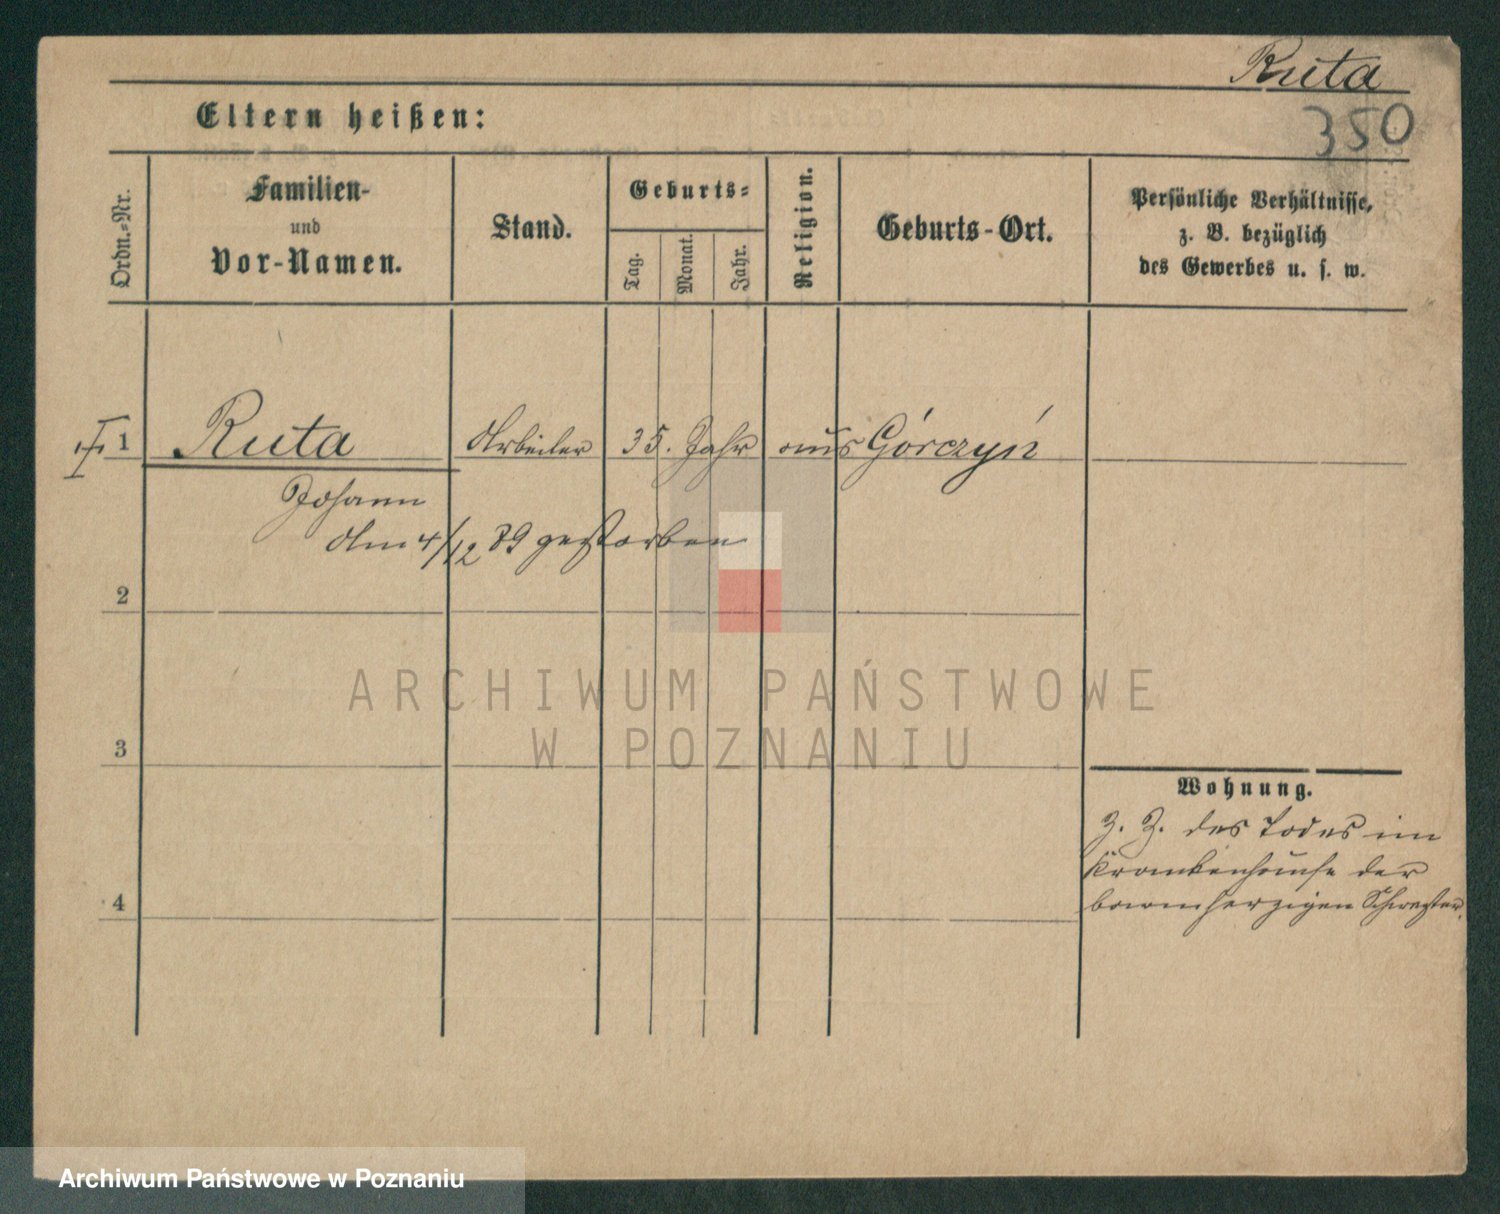 Ruta
350
Eltern heißen:
Ordn.-Nr.
Familien-
und
Vor-Namen.
Stand.
Geburts-
Tag.
Monat.
Jahr.
Religion.
Geburts-Ort.
Persönliche Verhältnisse,
z. B. bezüglich
des Gewerbes u. s. w.
I 1 Ruta Arbeiter 35. Jahr aus Górczyń
Johann
Am 4/12 89 gestorben
2
ARCHIWUM PAŃSTWOWE
W POZNANIU
3
Wohnung.
Z. Z. des Todes im
Krankenhause der
barmherzigen Schwester.
4
Archiwum Państwowe w Poznaniu